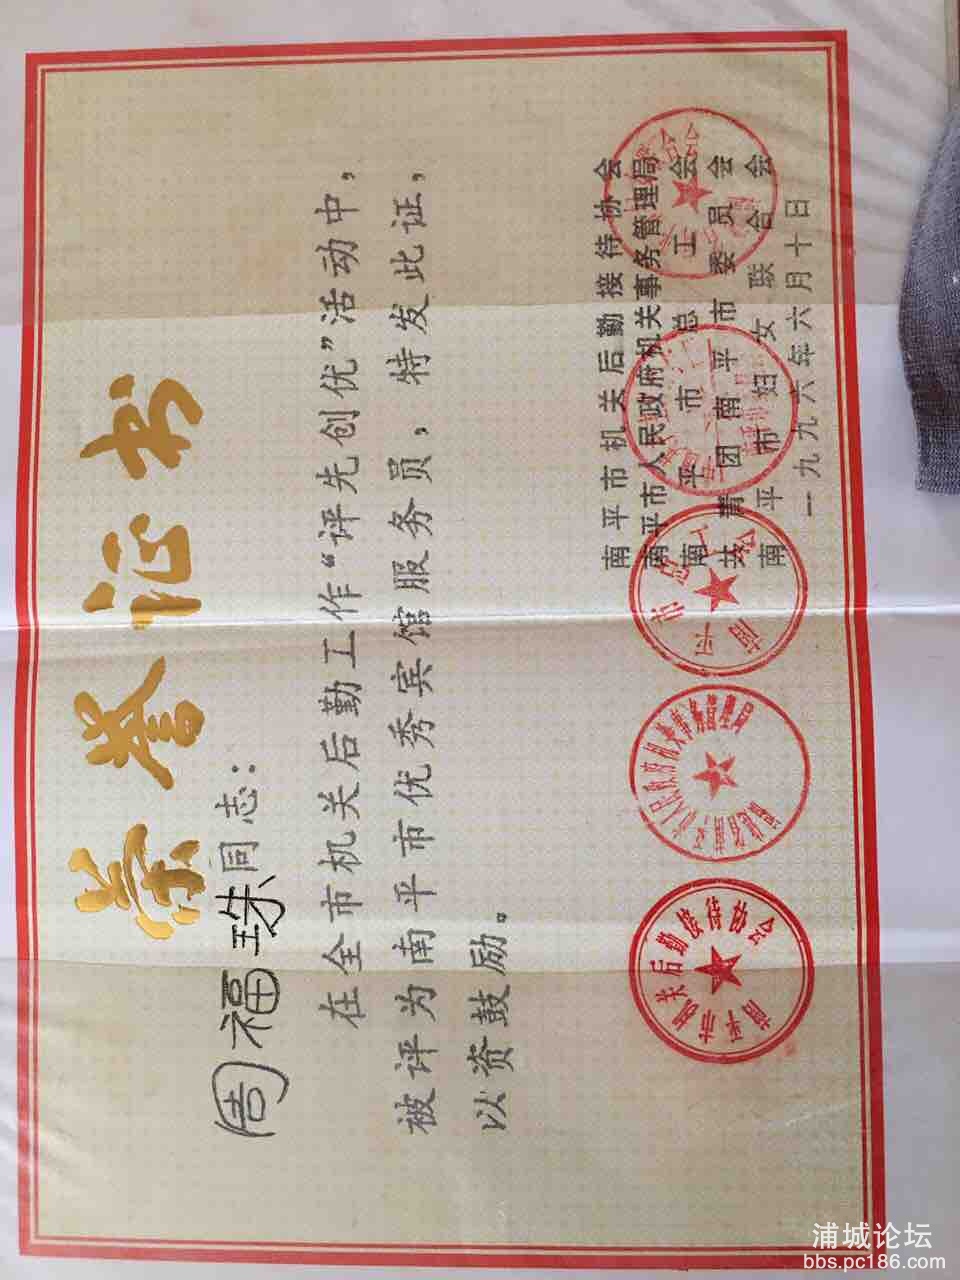 荣誉证书
周福珠同志：
在全市机关后勤工作“评先创优”活动中，
被评为南平市优秀宾馆服务员，特发此证，
以资鼓励。
南平市机关后勤接待协会
南平市人民政府机关事务管理局
南平市总工会
共青团南平市委员会
南平市妇女联合会
一九九六年六月十日
南平市机关后勤接待协会
南平市总工会
浦城论坛
bbs.pc186.com